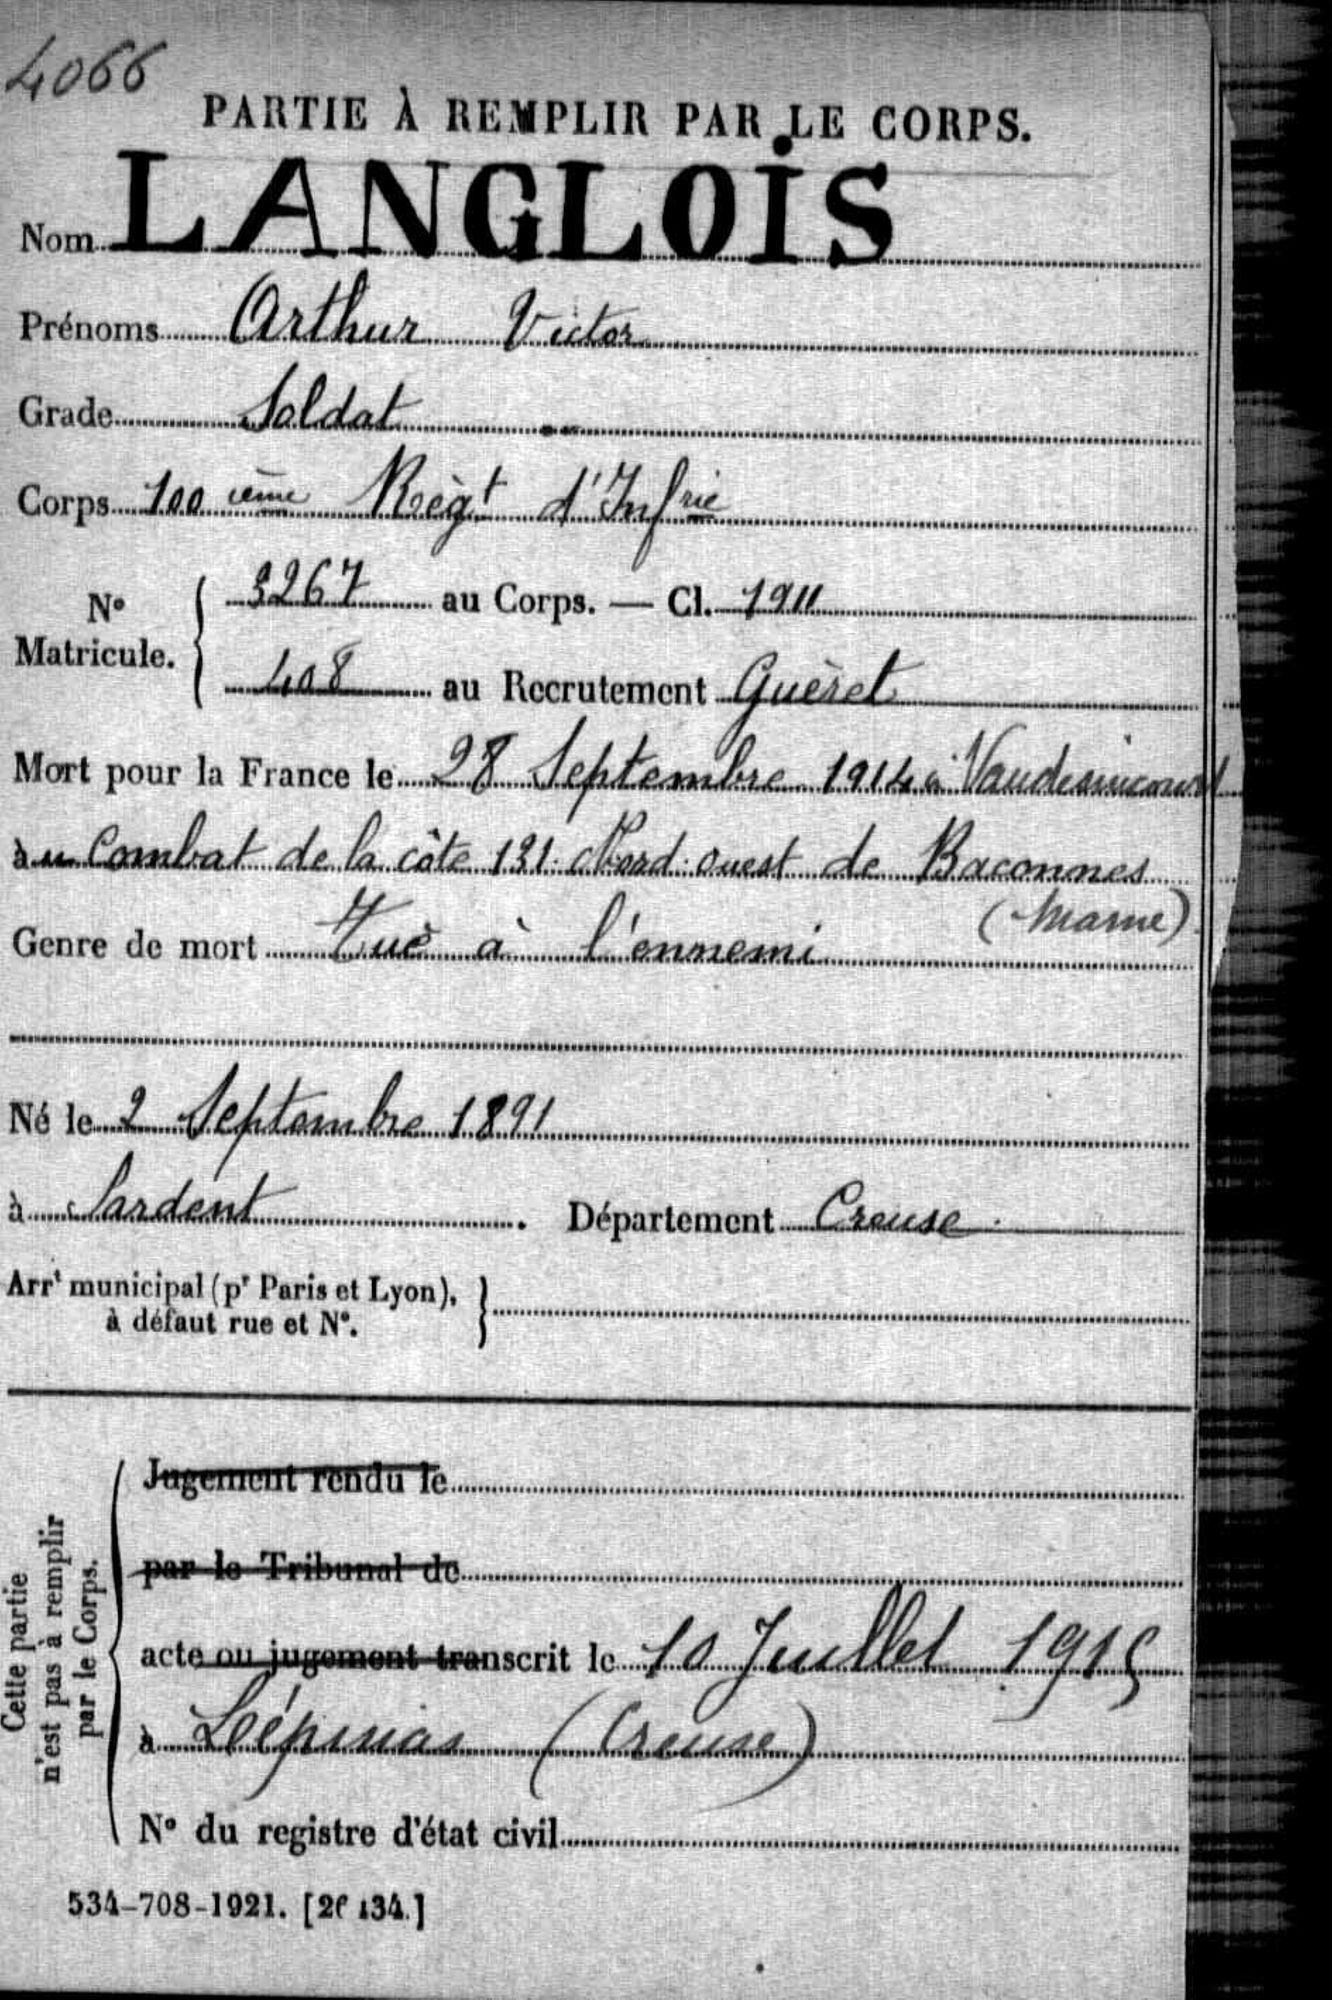 4066
PARTIE À REMPLIR PAR LE CORPS.
Nom LANGLOIS
Prénoms Arthur Victor
Grade Soldat
Corps 100 ième Règt d'Infrie
N° Matricule. 3267 au Corps. — Cl. 1911
408 au Recrutement Guèret
Mort pour la France le 28 Septembre 1914 à Vaudesincourt
au Combat de la côte 131 Nord-ouest de Baconnes
(Marne)
Genre de mort Tué à l'ennemi
Né le 2 Septembre 1891
à Sardent. Département Creuse.
Arrt municipal (pr Paris et Lyon),
à défaut rue et N°.
Cette partie
n'est pas à remplir
par le Corps.
Jugement rendu le
par le Tribunal de
acte ou jugement transcrit le 10 Juillet 1915
à Lépinas (Creuse)
N° du registre d'état civil
534-708-1921. [26434.]